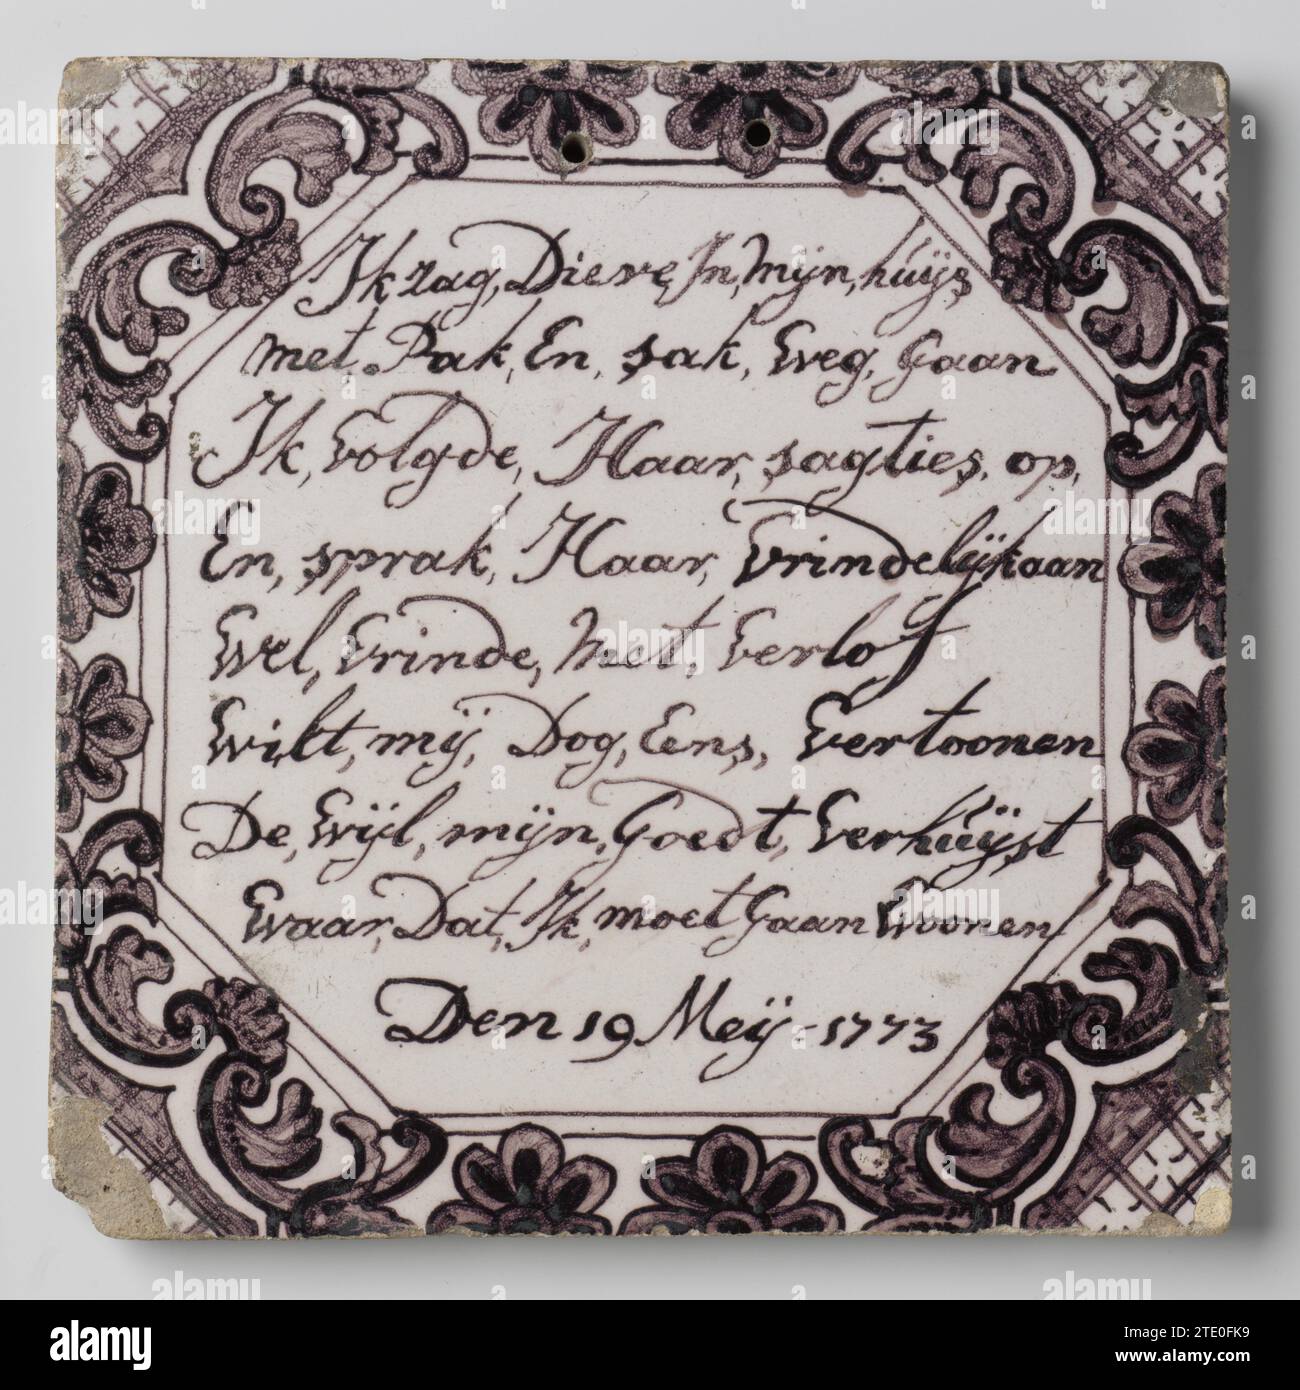 Ik, zag, Dieve, In, Mijn, huijs
met Pak, En, sak, Weg, Gaan
Ik, Volgde, Haar, sagties, op,
En, sprak, Haar, Vrindelijk aan
Wel, Vrinde, Met, Verlof
Wilt, mij, Dog, Eens, Vertoonen
De, Wijl, mijn, Goedt, Verhuijst
Waar, Dat, Ik, moet Gaan Woonen
Den 19 Meij - 1773
alamy
Image ID: 2TE0FK9
www.alamy.com